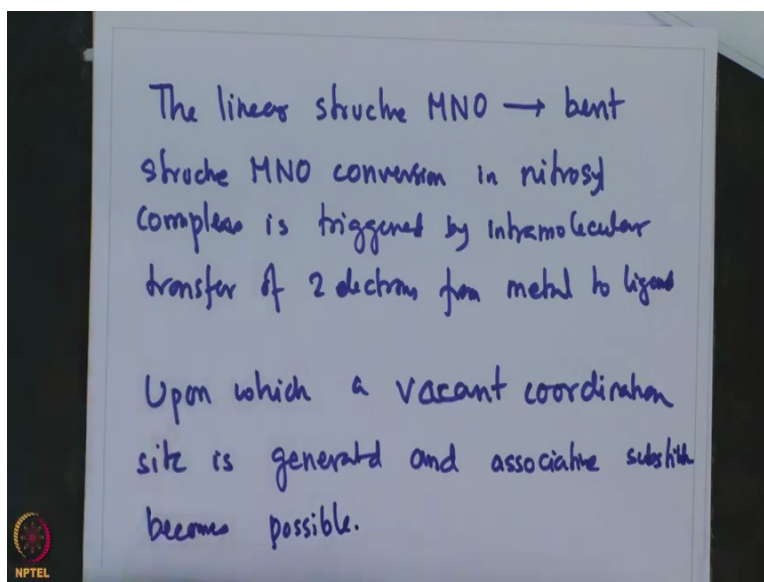 The linear struche MNO → bent
struche MNO conversion in nitrosyl
complexes is triggered by intramolecular
transfer of 2 electrons from metal to ligand
Upon which a vacant coordination
site is generated and associative substitn
becomes possible.
NPTEL